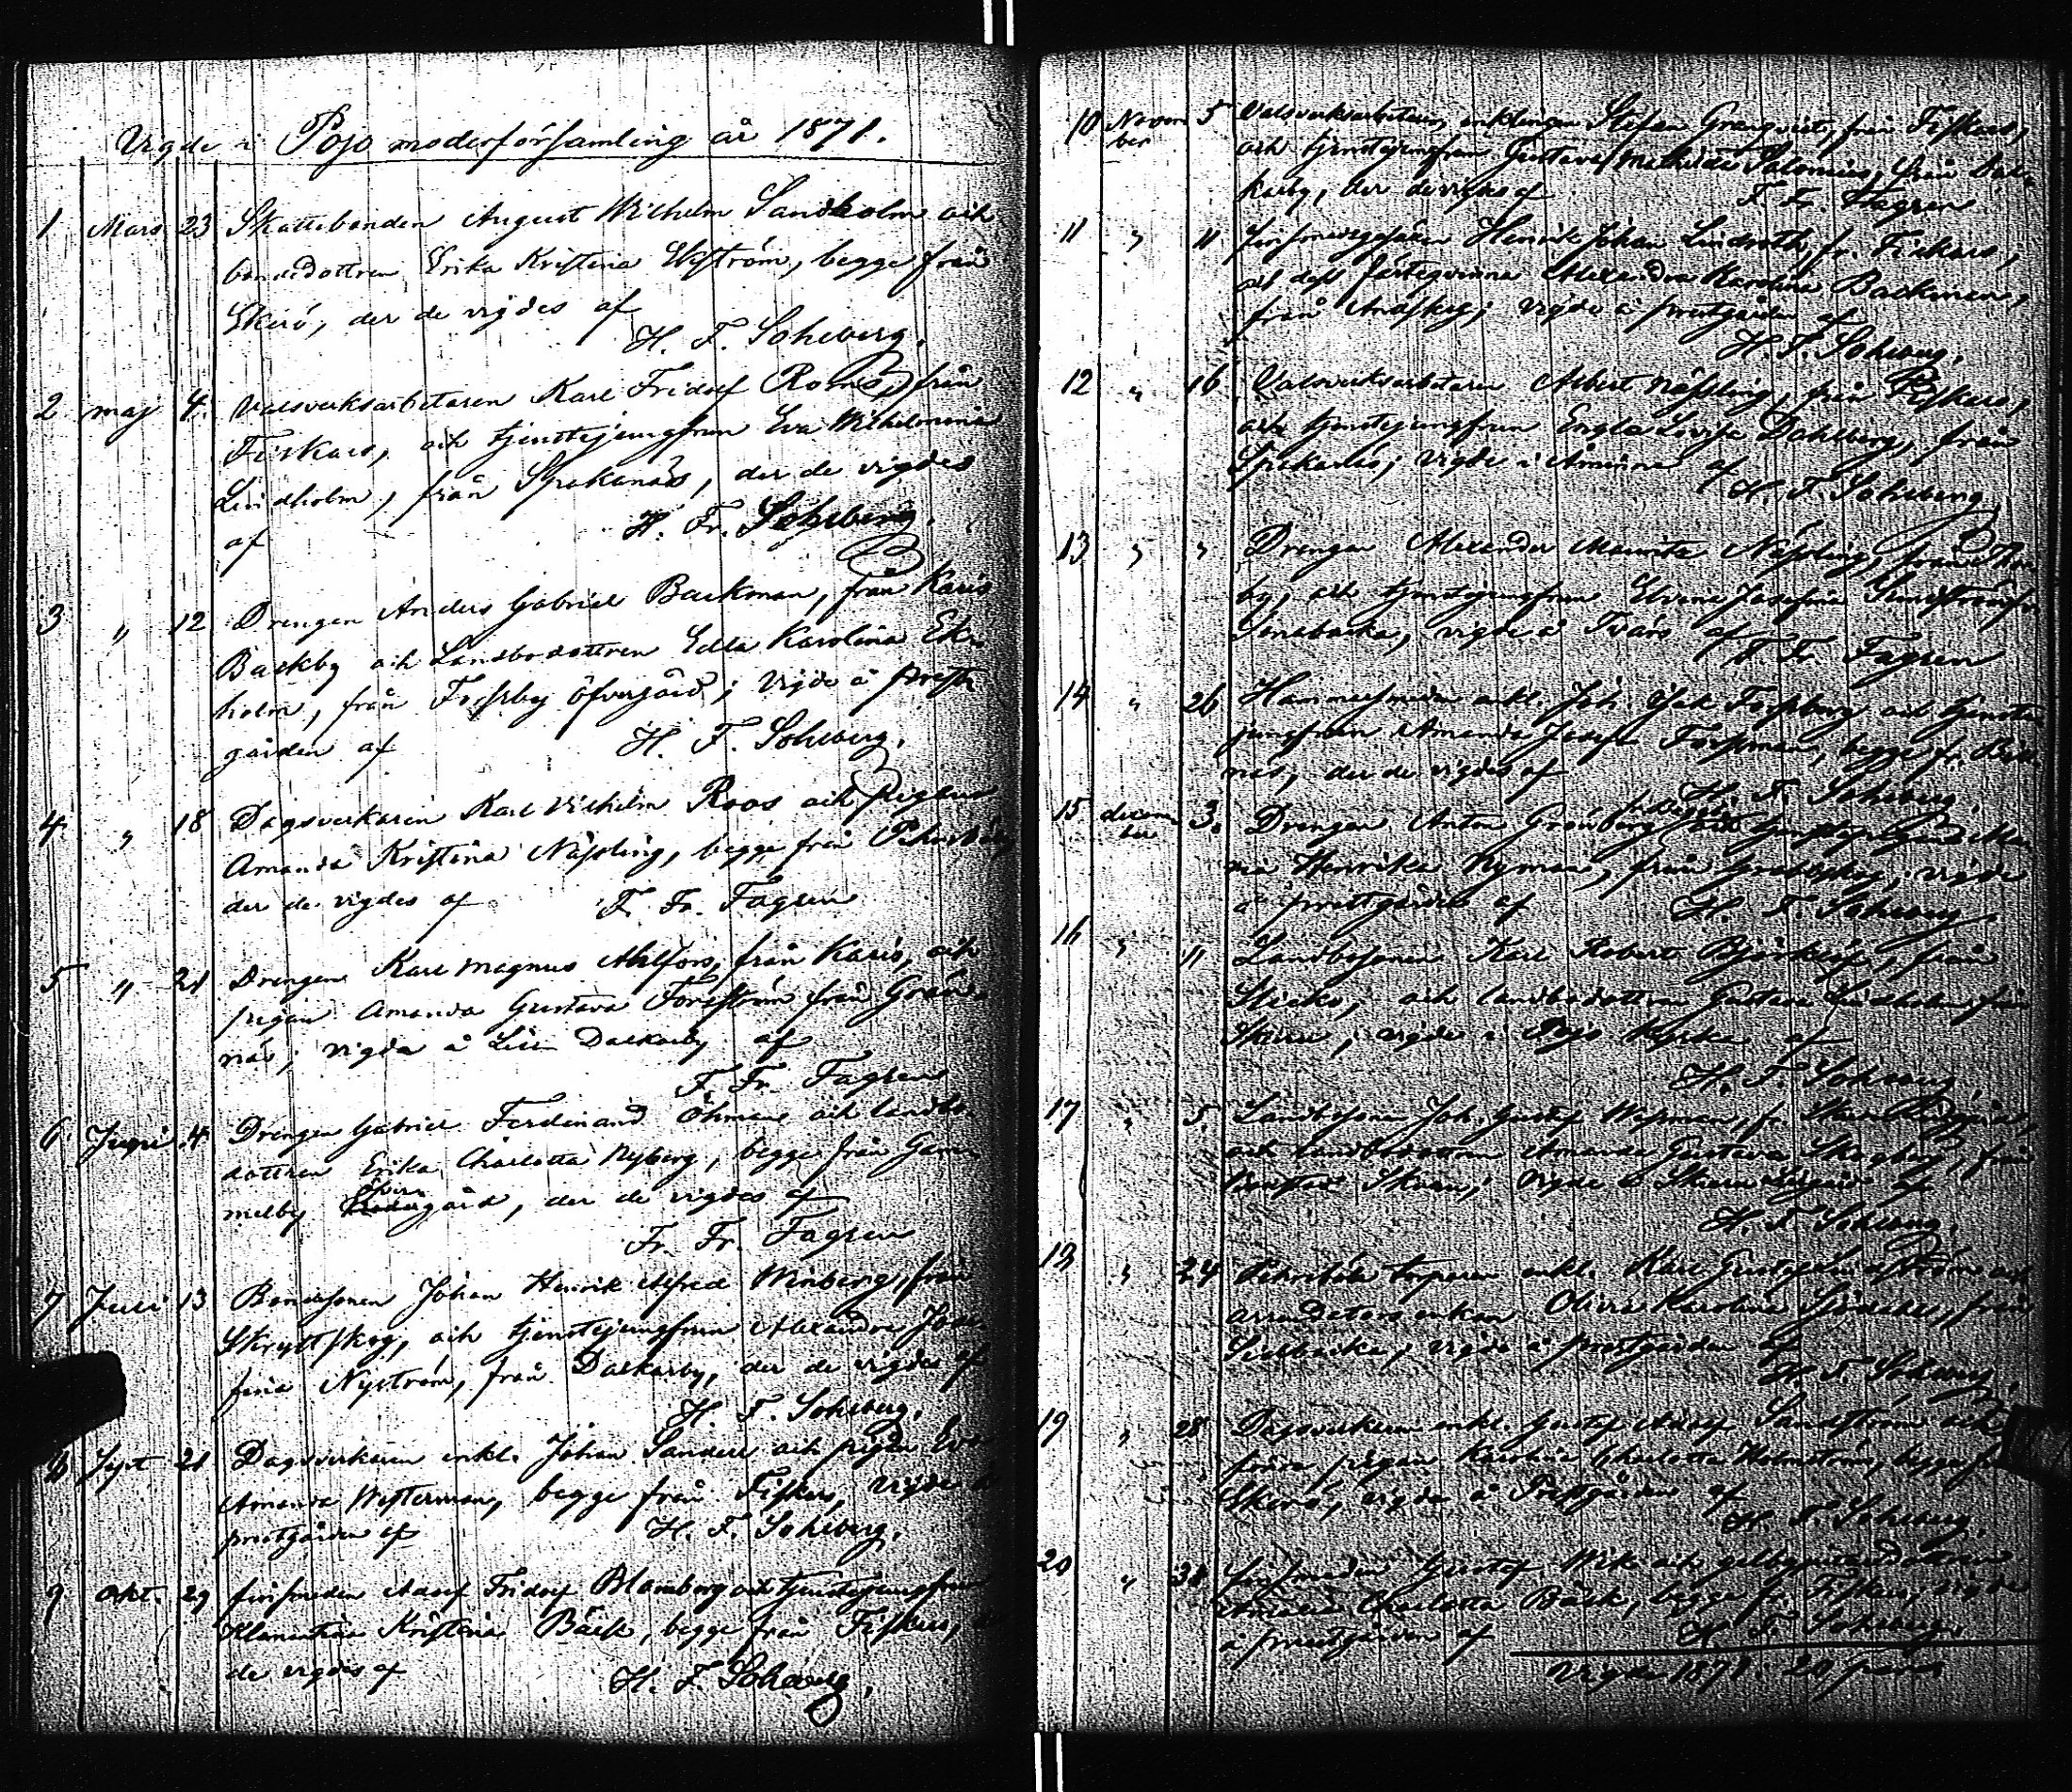 Vigde i Pojo moderförsamling år 1871.
1 Mars 23 Skattebonden August Wilhelm Sandholm och
bondedottren Erika Kristina Wiström, begge från
Skerö, der de vigdes af
H. F. Sohlberg.
2 maj 4. Valsverksarbetaren Karl Fridolf Roms, från
Fiskars, och tjenstejungfrun Eva Wilhelmina
Lindholm, från Spakanäs, der de vigdes
af H. Fr. Sohlberg.
3 " 12 Drengen Anders Gabriel Backman, från Karis
Backby och Landbodottren Edla Karolina Ek-
holm, från öfvergård; vigde å prest
gården af H. F. Sohlberg.
4. " 18 Dagsverkaren Karl Vilhelm Roos och pigan
Amanda Kristina Näsling, begge från
der de vigdes af F. Fr. Fagren
5 " 21 Drengen Karl Magnus Ahlfors, från Karis, och
pigan Amanda Gustava Forsström från Gränd-
näs; vigda å Lill Dalkarby af
F. Fr. Fagren
6. Juni 4. Drengen Gabriel Ferdinand Öhman och landbo-
dottren Erika Charlotta Nyberg, begge från Gam-
melby öfvergård, der de vigdes af
Fr. Fr. Fagren
7 Juli 13 Bondesonen Johan Henrik Alfred Winberg, från
Skryttskog, och tjenstejungfrun Alexandra Jose-
fina Nyström, från Dalkarby, der de vigdes af
H. F. Sohlberg.
8 Sept 21 Dagsverkaren enkl. Johan Sandell och pigan Eva
Amanda Westerman, begge från Fiskars, vigde å
prestgården af H. F. Sohlberg.
9 Okt. 29 Adolf Fridolf Blomberg och tjenstejungfrun
Klementina Kristina Bäck, begge från Fiskars,
de vigdes af H. F. Sohlberg.
10 Novem 5 Valsverksarbetaren, enklingen Stefan Granqvist, från Fiskars,
ber och tjenstejungfrun Gustava Mathilda Salonius, från Dal-
karby, der de vigdes af F. Fr. Fagren
11 " 11 Henrik Johan Lindroth, fr. Fiskars,
och dess fästeqvinna Alexandra Karolina Backman,
från vigde å prestgården af
H. F. Sohlberg.
12 " 16 Valsverksarbetaren Albert Näsling, från Fiskars,
och tjenstejungfrun Engla Lovisa Dahlberg, från
Spakanäs; vigde i Åminne af
H. F. Sohlberg
13 " " Drengen Alexander Näsling, från
by, och tjenstejungfrun Josefina
vigde å af F. Fr. Fagren
14 " 26 Hammarsmeden enkl. Joh. Isak Forsberg och tjenste
jungfrun Amanda Josefa Forsman, begge fr.
näs, der de vigdes af
H. F. Sohlberg.
15 decem 3. Drengen Anton Grönberg
ber Henrika Nyman, från vigde
å prestgården af H. F. Sohlberg.
16 " " Landbosonen Karl Robert Björklöf, från
och landbodottren Gustava Lindholm från
Skuru; vigde i Pojo kyrka af
H. F. Sohlberg
17 " 5. Landbosonen Joh. Gustaf Wesman, fr.
och landbodottren Amanda Gustava Skogberg, från
Skuru; vigde å Skuru af
H. F. Sohlberg.
18 " 24 torparen enkl. Karl Gustaf
arrendators enkan Olivia Karolina från
vigde å prestgården af
H. F. Sohlberg.
19 " 28 Dagsverkaren enkl. Gustaf Adolf Sandström och
pigan Karolina Charlotta Holmström, begge fr.
Skerö, vigde å Prestgården af
H. F. Sohlberg.
20 " 31 Gustaf Wik och
Amalia Charlotta Bäck, begge fr. Fiskars, vigde
å prestgården af H. F. Sohlberg.
Vigde 1871: 20 para